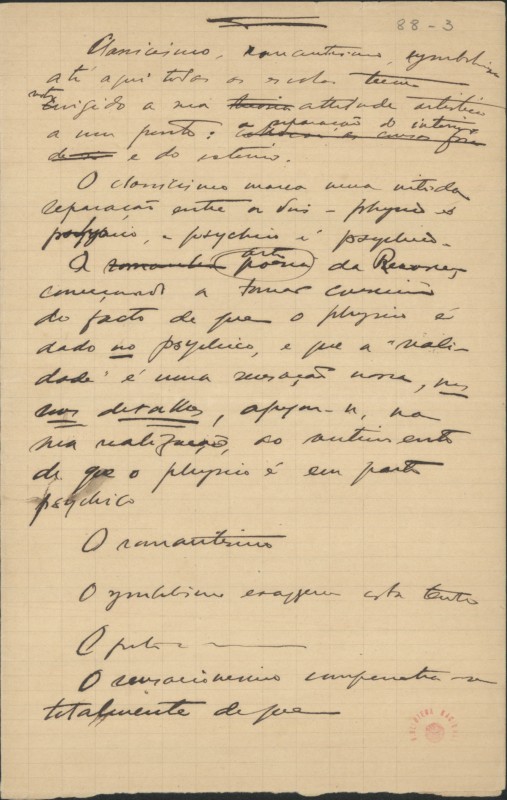 88-3
Classicismo, romantismo, symbolismo
até aqui todas as escolas teem
dirigido a sua theoria attitude artistica
a um ponto: a separação do interior
e do exterior.
O classicismo marca uma nitida
separação entre os dois - physico é
physico, e psychico é psychico.
A romantica arte poesia da Renascença,
começando a tomar consciencia
do facto de que o physico é
dado no psychico, e que a "reali-
dade" é uma sensação nossa, nos
seus detalhes, apoya-se, na
sua realização, ao sentimento
de que o physico é em parte
psychico
O romantismo
O symbolismo exaggera esta
O
O sensacionismo compenetra-se
totalmente de que